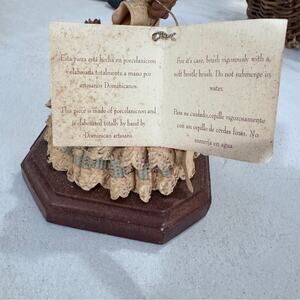 Esta pieza está hecha en porcelanicron
y elaborada totalmente a mano por
artesanos Dominicanos.
This piece is made of porcelanicron and
is elaborated totally by hand by
Dominican artisans.
For it's care, brush vigorously with a
soft bristle brush. Do not submerge in
water.
Para su cuidado, cepille vigorosamente
con un cepillo de cerdas finas. No
sumerja en agua.